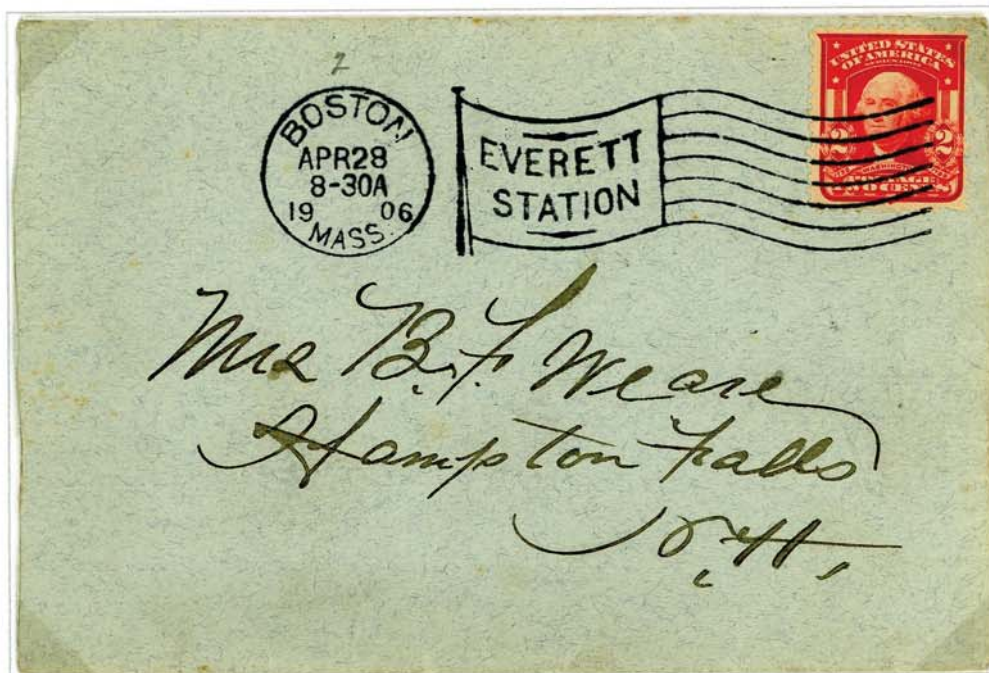 2
BOSTON
APR28
8-30A
19 06
MASS.
EVERETT
STATION
UNITED STATES
OF AMERICA
2 2
WASHINGTON
TWO CENTS
Mrs B. F. Weare
Hampton Falls
N. H.,